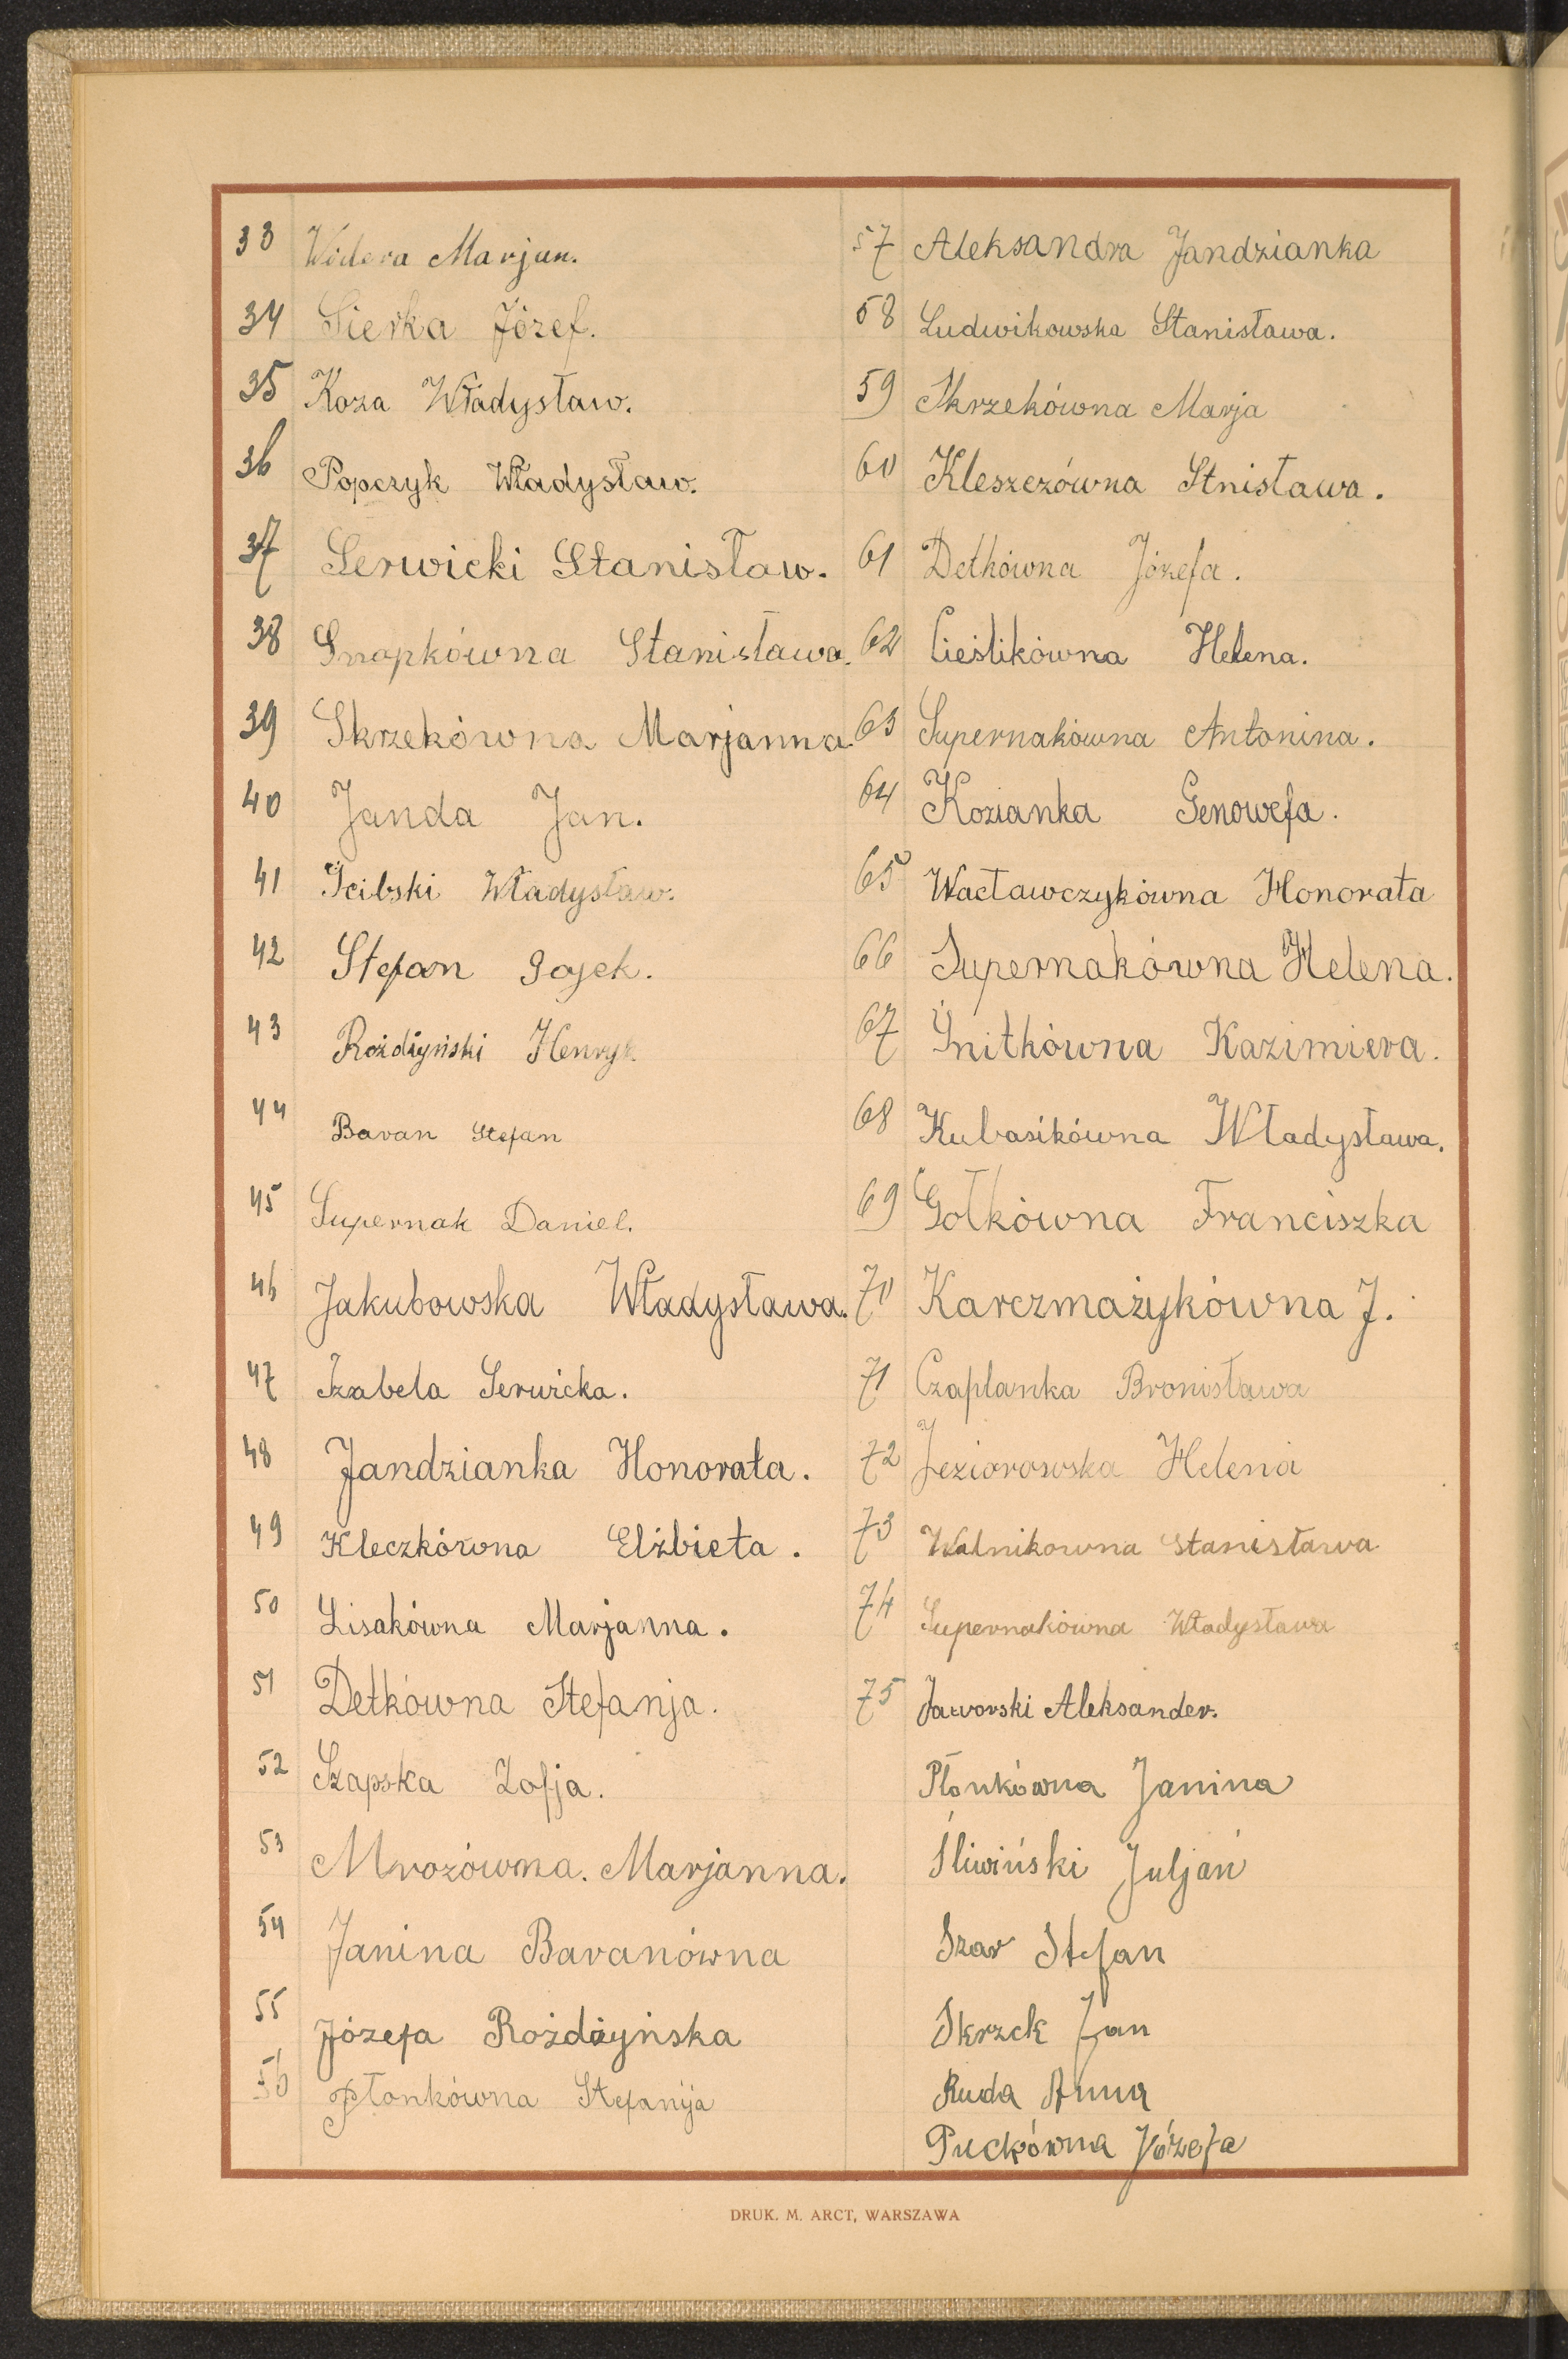 33 Widera Marjan.
34 Sierka Józef.
35 Koza Władysław.
36 Popczyk Władysław.
37 Serwicki Stanisław.
38 Snopkówna Stanisława.
39 Skrzekówna Marjanna
40 Janda Jan.
41 Ścibski Władysław.
42 Stefan Gajek.
43 Rożdżyński Henryk
44 Baran Stefan
45 Supernak Daniel.
46 Jakubowska Władysława.
47 Izabela Serwicka.
48 Jandzianka Honorata.
49 Kleczkówna Elżbieta.
50 Lisakówna Marjanna.
51 Detkówna Stefanja.
52 Szapska Zofja.
53 Mrozówna. Marjanna.
54 Janina Baranówna
55 Józefa Rożdżyńska
56 Płonkówna Stefanija
57 Aleksandra Jandzianka
58 Ludwikowska Stanisława.
59 Skrzekówna Marja
60 Kleszczówna Stnisława.
61 Detkówna Józefa.
62 Cieślikówna Helena.
63 Supernakówna Antonina.
64 Kozianka Genowefa.
65 Wacławczykówna Honorata
66 Supernakówna Helena.
67 Śnitkówna Kazimiera.
68 Kubasikówna Władysława.
69 Gołkówna Franciszka
70 Karczmażykówna J.
71 Czaplanka Bronisława
72 Jeziorowska Helena
73 Walnikowna Stanisława
74 Supernakówna Władysława
75 Jaworski Aleksander.
Płonkówna Janina
Śliwiński Juljan
Szar Stefan
Skrzek Jan
Ruda Anna
Puckówna Józefa
DRUK. M. ARCT, WARSZAWA